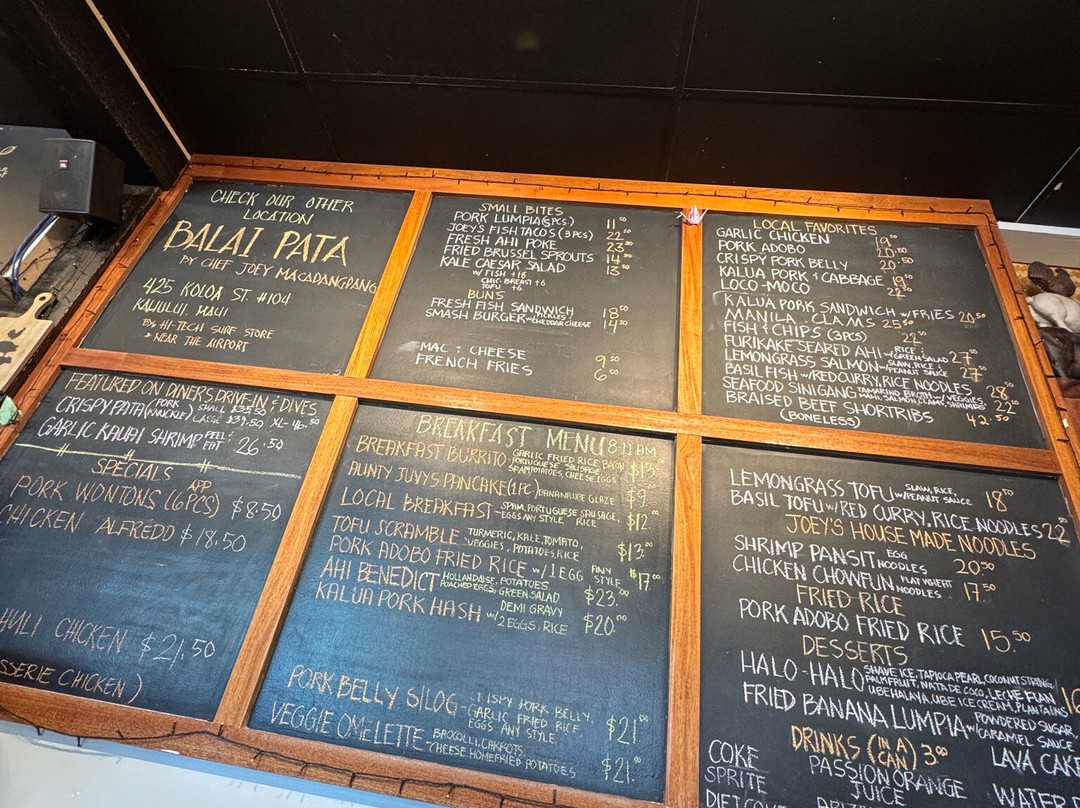 CHECK OUR OTHER
LOCATION
BALAI PATA
BY CHEF JOEY MACADANGDANG
425 KOLOA ST. #104
KAHULUI, MAUI
BY HI-TECH SURF STORE
* NEAR THE AIRPORT
SMALL BITES
PORK LUMPIA (6PCS) 11.50
JOEY'S FISH TACOS (3PCS) 22.50
FRESH AHI POKE 23.50
FRIED BRUSSEL SPROUTS 14.50
KALE CAESAR SALAD 13.50
W/ FISH +18
CHIC. BREAST +6
TOFU +6
BUNS
FRESH FISH SANDWICH 18.50
SMASH BURGER W/ PICKLES CHEDDAR CHEESE 14.50
MAC & CHEESE 9.50
FRENCH FRIES 6.00
LOCAL FAVORITES
GARLIC CHICKEN 19.50
PORK ADOBO
CRISPY PORK BELLY 20.50
KALUA PORK & CABBAGE 19.50
LOCO-MOCO 22.50
KALUA PORK SANDWICH W/ FRIES 20.50
MANILA CLAMS 25.50
FISH & CHIPS (3PCS) 22.50
FURIKAKE SEARED AHI - RICE & GREEN SALAD 27.50
LEMONGRASS SALMON - SLAW, RICE & W/ PEANUT SAUCE 27.50
BASIL FISH W/ RED CURRY, RICE NOODLES 28.50
SEAFOOD SINIGANG TAMARIND BROTH W/ VEGGIES, MAHI, SALMON, CLAMS, SHRIMPS 22.50
BRAISED BEEF SHORTRIBS 42.50
(BONELESS)
FEATURED ON DINERS, DRIVE-IN & DIVES
CRISPY PATA (PORK KNUCKLE) SMALL $35.50 LARGE $39.50 XL-46.50
GARLIC KAUAI SHRIMP PEEL & EAT 26.50
SPECIALS
PORK WONTONS (6PCS) APP $8.50
CHICKEN ALFREDO $18.50
HULI CHICKEN $21.50
SSERIE CHICKEN)
BREAKFAST MENU 8-11 AM
BREAKFAST BURRITO - GARLIC FRIED RICE, BACON, PORTUGUESE SAUSAGE, SPAM, POTATOES, CHEESE, EGGS $13.00
AUNTY JUVY'S PANCAKE (1PC) BANANA RUBE GLAZE $9.00
LOCAL BREAKFAST - SPAM, PORTUGUESE SAUSAGE, EGGS ANY STYLE, RICE $12.00
TOFU SCRAMBLE - TURMERIC, KALE, TOMATO, VEGGIES, POTATOES, RICE $13.00
PORK ADOBO FRIED RICE W/ 1 EGG ANY STYLE $17.00
AHI BENEDICT HOLLANDAISE, POTATOES, POACHED EGGS, GREEN SALAD $23.00
KALUA PORK HASH - DEMI GRAVY W/ 2 EGGS, RICE $20.00
PORK BELLY SILOG - CRISPY PORK BELLY, GARLIC FRIED RICE, EGGS ANY STYLE $21.00
VEGGIE OMELETTE - BROCOLLI, CARROTS, CHEESE, HOMEFRIED POTATOES $21.00
LEMONGRASS TOFU - SLAW, RICE, W/ PEANUT SAUCE 18.50
BASIL TOFU W/ RED CURRY, RICE NOODLES 22
JOEY'S HOUSE MADE NOODLES
SHRIMP PANSIT EGG NOODLES 20.50
CHICKEN CHOWFUN, FLAT WHEAT NOODLES 17.50
FRIED RICE
PORK ADOBO FRIED RICE 15.50
DESSERTS
HALO-HALO SHAVE ICE, TAPIOCA PEARL, COCONUT STRINGS, PALM FRUIT, NATA DE COCO, LECHE FLAN, UBE HALAYA, UBE ICE CREAM, PLANTAINS
FRIED BANANA LUMPIA - POWDERED SUGAR, W/ CARAMEL SAUCE
DRINKS (IN A CAN) 3.00
LAVA CAKE
COKE PASSION ORANGE JUICE
SPRITE WATER
DIET COKE